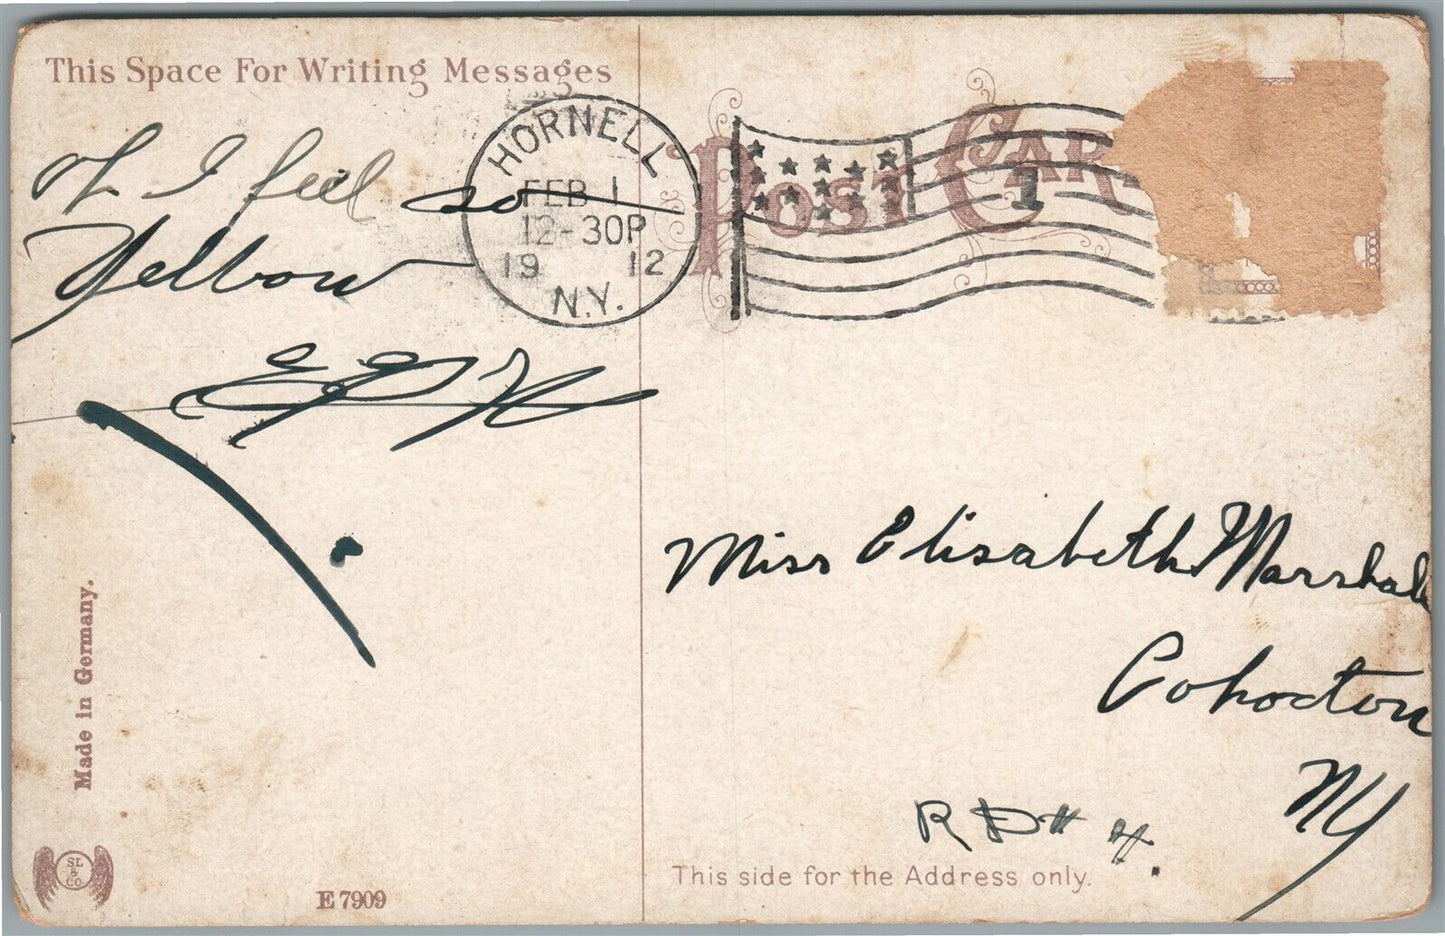 This Space For Writing Messages
Oh I feel so
Yellow
E E H
HORNELL
FEB 1
12-30P
19 12
N.Y.
POST CAR
1
Miss Elisabeth Marshall
Cohocton
NY
R D # 4.
This side for the Address only.
Made in Germany.
SL
&
CO
E 7909